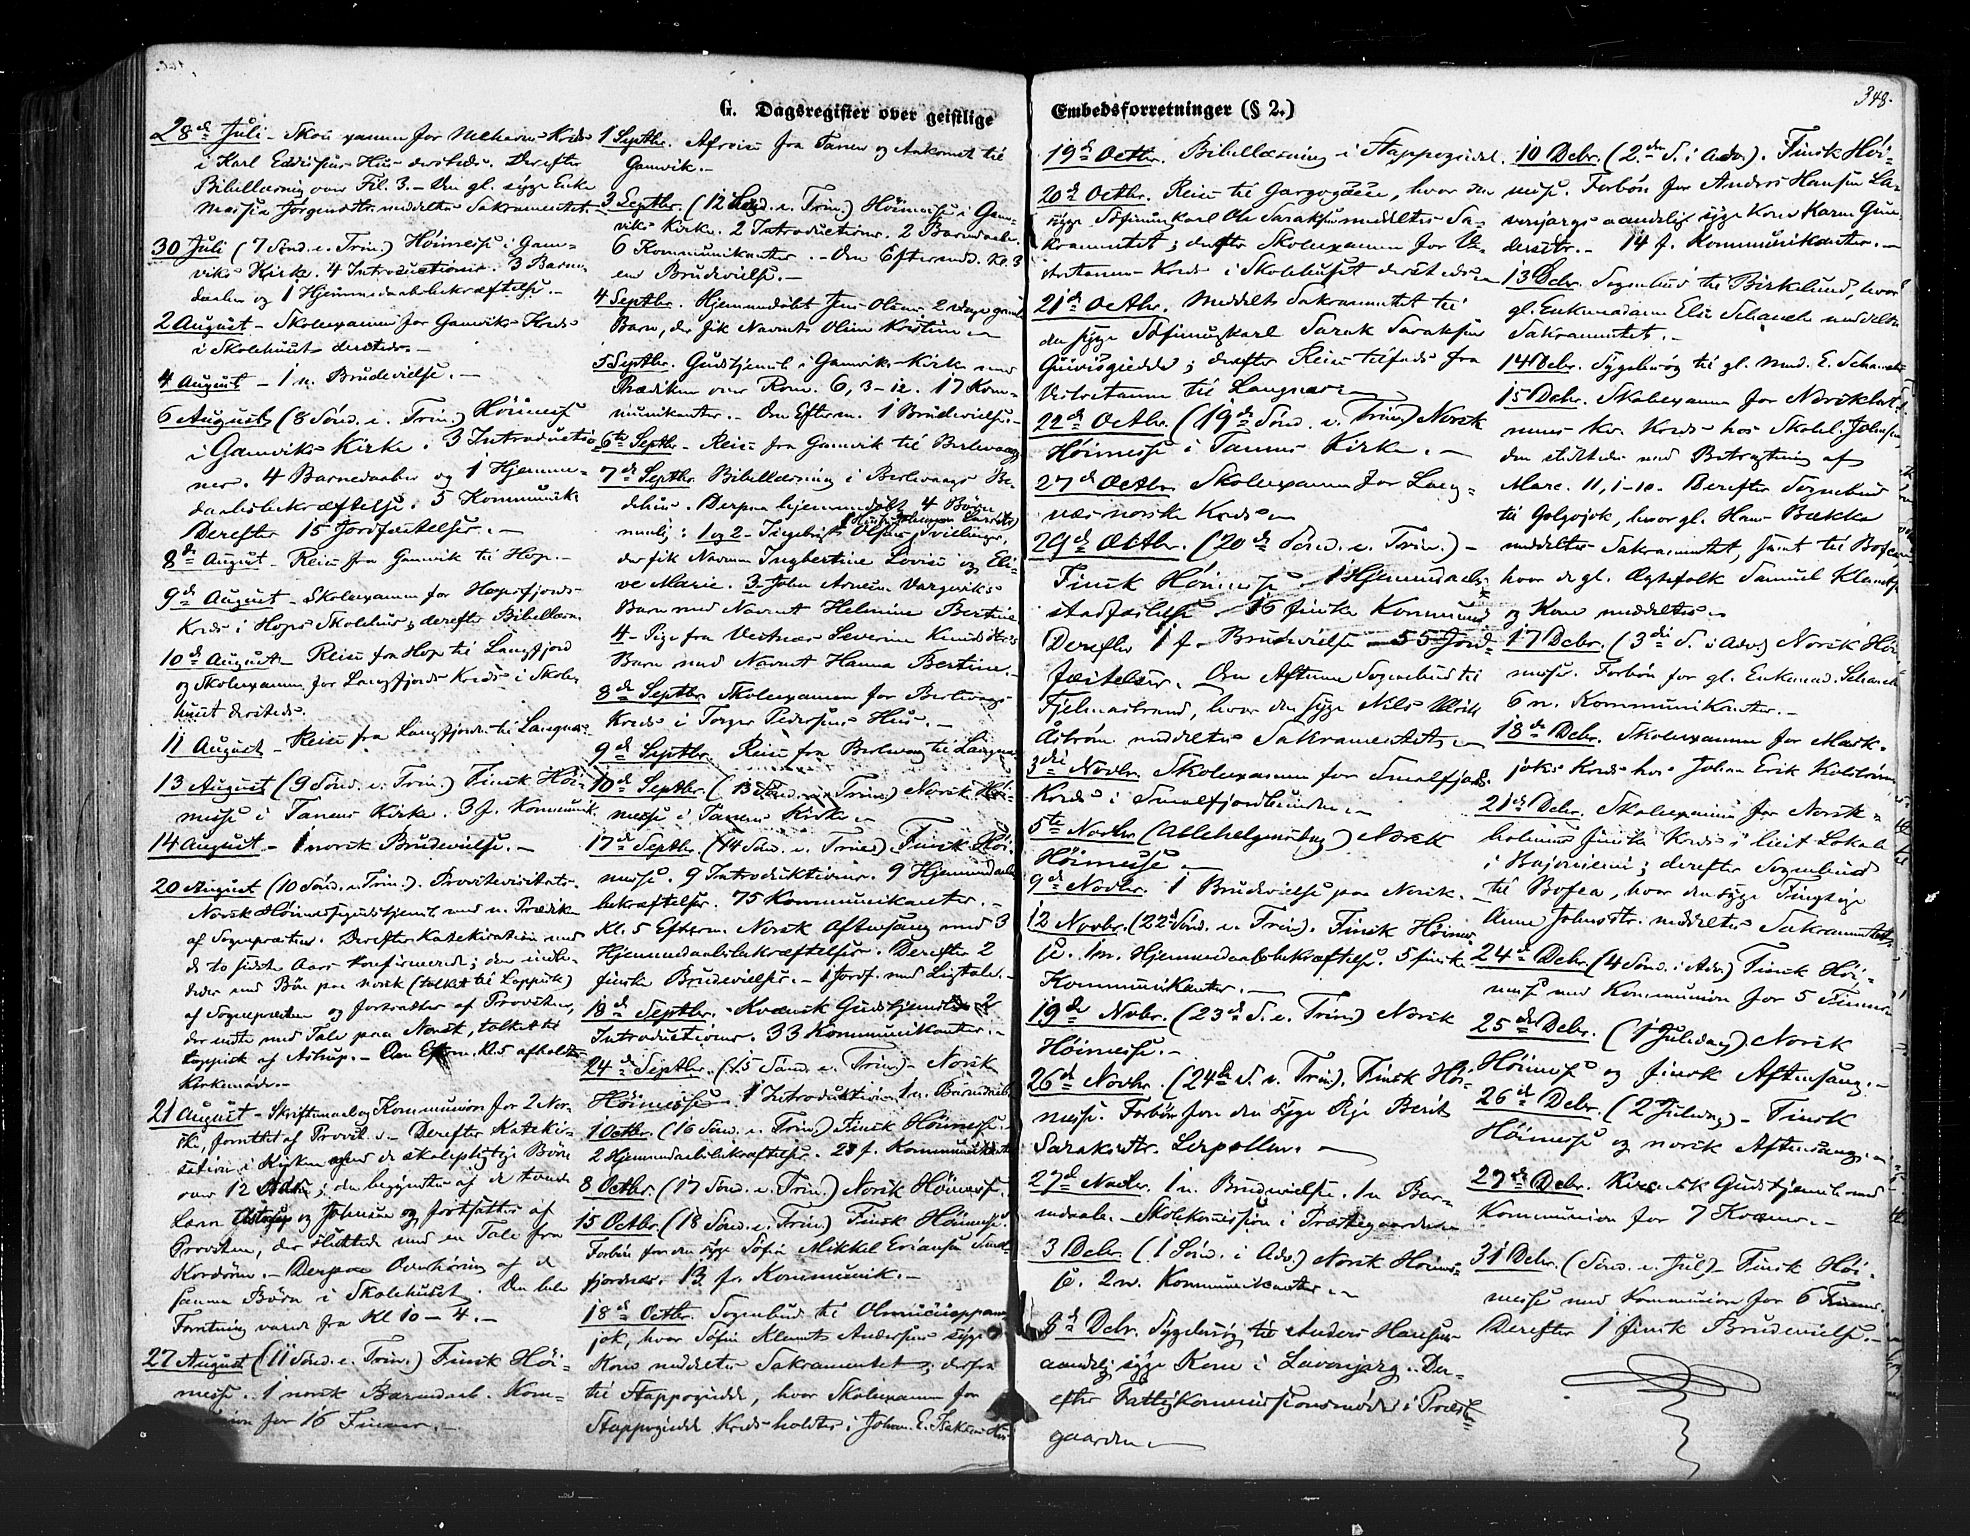 G. Dagsregister over geistlige
28de Juli - Skoleexamen for Mehavns Kreds
i Karl Hus dersteds. Derefter
Bibellæsning over Fil. 3. - Den gl. syge Enke
Jørgensdtr. meddeltes Sakramentet. -
30 Juli (7 Sönd. e. Trin.) Höimesse i Gam-
viks Kirke. 4 Introductioner. 3 Barne-
daaber og 1 Hjemmedaabsbekræftelse. -
2 August - Skoleexamen for Gamviks Kreds
i Skolehuset dersteds. -
4 August - 1 n. Brudevielse. -
6 August (8 Sönd. e. Trin.) Höimesse
i Gamviks Kirke. 3 Introductio-
ner. 4 Barnedaaber og 1 Hjemme-
daabsbekræftelse. 5 Kommunik.
Derefter 15 Jordfæstelser. -
8de August - Reise fra Gamvik til Hop. -
9de August - Skoleexamen for Hopsfjords-
Kreds i Hops Skolehus; derefter Bibellæsn.
10de August - Reise fra Hop til Langfjord
og Skoleexamen for Langfjords Kreds i Skole-
huset dersteds.
11 August - Reise fra Langfjorden til Langnæs
13 August (9 Sönd. e. Trin.) Finsk Höi-
messe i Tanens Kirke. 3 f. Kommunik.
14 August - 1 norsk Brudevielse. -
20 August (10 Sönd. e. Trin.). Provstevisitats.
Norsk Höimessegudstjeneste med n. Prædiken
af Sognepræsten. Derefter Katekisation med
de to sidste Aars Konfirmerede; den indle-
dedes med Bön paa norsk (tolket til Lappisk)
af Sognepræsten og fortsattes af Provsten,
der endte med Tale paa Norsk, tolket til
Lappisk af Astrup. - Om Efterm. Kl. 5 afholdtes
Kirkemöde. -
21 August - Skriftemaal og Kommunion for 2 Nor-
ske, forrettet af Provst - Derefter Kateki-
sation i Kirken med de skolepligtige Börn
over 12 Aar; den begyndtes af de tvende
Lærere Astrup og Johnsen og fortsattes af
Provsten, der sluttede med en Tale fra
Kordören. - Derpaa Overhöring af de
samme Börn i Skolehuset. Den hele
Forretning varede fra Kl 10 - 4. -
27 August (11 Sönd. e. Trin.) Finsk Höi-
messe. 1 norsk Barnedaab. Kom-
munion for 16 Finner. -
1 Septbr. Afreise fra Tanen og Ankomst til
Gamvik. -
3 Septbr. (12 Sönd. e. Trin.) Höimesse i Gam-
viks Kirke. 2 Introductioner. 2 Barnedaaber.
6 Kommunikanter. - Om Eftermdd. Kl. 3
en Brudevielse. -
4 Septbr. Hjemmedöbt Jens Olsens 2 dage gamle
Barn, der fik Navnet Oline Kristine -
5 Septbr. Gudstjeneste i Gamviks Kirke med
Prædiken over Rom. 6, 3-12. 17 Kom-
munikanter. - Om Efterm. 1 Brudevielse. -
6te Septbr. - Reise fra Gamvik til Berlevaag
7de Septbr. Bibellæsning i Berlevaags Be-
dehus. Derpaa hjemmedöbt 4 Börn
nemlig: 1 og 2 - Ingebrigt Olsens Tvillinger,
der fik Navnene Ingbertine Lovise og Eli-
se Marie. 3 John Arnesen Vargviks
Barn med Navnet Helmine Bertine
4 - Pige fra Vestnes Severine Knudsdtrs
Barn med Navnet Hanna Bertine. -
8de Septbr. Skoleexamen for Berlevaags
Kreds i Torger Pedersens Hus. -
9de Septbr. Reise fra Berlevaag til Langnæs
10de Septbr. (13 Sönd. e. Trin.) Norsk Höi-
messe i Tanens Kirke -
17de Septbr. (14 Sönd. e. Trin.) Finsk Höi-
messe. 9 Introduktioner. 9 Hjemmedaabs-
bekræftelser. 75 Kommunikanter. -
Kl. 5 Efterm. Norsk Aftensang med 3
Hjemmedaabsbekræftelser. Derefter 2
finske Brudevielser. - 1 Jordf. med Ligtale. -
18de Septbr. - Kvænsk Gudstjeneste 2
Introductioner. 33 Kommunikanter. -
24de Septbr. (15 Sönd. e. Trin.) - Norsk
Höimesse. 1 Introduktion 1 n. Barnedaab.
1 Octbr. (16 Sönd. e. Trin.) Finsk Höimesse.
2 Hjemmedaabsbekræftelser. 28 f. Kommunikanter
8 Octbr. (17 Sönd. e. Trin.) Norsk Höimesse.
15 Octbr. (18 Sönd. e. Trin.) Finsk Höimesse.
Forbön for den syge Söfin Mikkel Eriansen Smal-
fjordnæs. 13 f. Kommunik. -
18de Octbr. Sognebud til
jok, hvor Söfin Klemet Andersens syge
Kone meddeltes Sakramentet; derfra
til Stappogiedde, hvor Skoleexamen for
Stappogiedde Kreds holdtes i Johan E. Isaksens Hus
Embedsforretninger (§ 2.)
348.
19de Octbr. Bibellæsning i Stappogiedde.
20de Octbr. Reise til Gargogiedde, hvor den
syge Söfinnekarl Ole Saraksen meddeltes Sa-
kramentet; derefter Skoleexamen for Ve-
stertanens Kreds i Skolehuset dersteds -
21de Octbr. Meddelt Sakramentet til
den syge Söfinnekarl Sarak Saraksen
Guivisgiedde; derefter Reise tilfods fra
Vestertanen til Langnæs -
22de Octbr. (19de Sönd. e. Trin.) Norsk
Höimesse i Tanens Kirke. -
27de Octbr. Skoleexamen for Lang-
næs norske Kreds -
29de Octbr. (20de Sönd. e. Trin.) -
Finsk Höimesse. 1 Hjemmedaabs-
stadfæstelse. 16 finske Kommunik.
Derefter 1 f. Brudevielse 55 Jord-
fæstelser. Om Aftenen Sognebud til
Fjelmastrand, hvor den syge Nils Ulrik
Åström meddeltes Sakramentet. -
3die Novbr. Skoleexamen for Smalfjords
Kreds i Smalfjordbunden -
5te Novbr. (Allehelgensdag) Norsk
Höimesse -
9de Novbr. 1 Brudevielse paa Norsk. -
12 Novbr. (22de Sönd. e. Trin). Finsk Höimes-
se. 1 n. Hjemmedaabsbekræftelse. 5 finske
Kommunikanter. -
19de Novbr. (23de S. e. Trin.) Norsk
Höimesse. -
26de Novbr. (24de S. e. Trin). Finsk Höi-
messe. Forbön for den syge Pige Berit
Saraksdtr. Leirpollen. -
27de Novbr. 1 n. Brudevielse. 1 n Bar-
nedaab. - Skolekomission i Præstegaarden
3 Debr. (1 Sönd. i Adv.) Norsk Höimes-
se. 2 n. Kommunikanter. -
8de Debr. Sygebesög til Anders Hansens
aandelig syge Kone i Lavonjarg. Der-
efter Fattigkommissionsmöde i Præste-
gaarden -
10 Debr. (2den S. i Adv.). Finsk Höi-
messe. Forbön for Anders Hansen La-
vonjargs aandelig syge Kone Karen Gun-
dersdtr. - 14 f. Kommunikanter. -
13 Debr. Sognebud til Birkelund, hvor
gl. Enkemadame Elis. Schanche meddeltes
Sakramentet. -
14 Debr. Sygebesög til gl. Mad. E. Schanche
15 Debr. Skoleexamen for Norskhol-
mens kv. Kreds hos Skolel. Johnsen
den sluttedes med Betragtning af
Marc. 11, 1-10. Derefter Sognebud
til Golgojok, hvor gl. Hans Bækka
meddeltes Sakramentet, samt til Bofea,
hvor de gl. Ægtefolk Samuel Klemetsen
og Kone meddeltes -
17 Debr. (3die S. i Adv.) Norsk Höi-
messe. Forbön for gl. Enkemad. Schanche
6 n. Kommunikanter. -
18de Debr. Skoleexamen for Mask-
joks Kreds hos Johan Erik Kolström
21de Debr. Skoleexamen for Norsk-
holmens finske Kreds i leiet Lokale
i ; derefter Sognebud
til Bofea, hvor den syge Finnepige
Anne Johnsdtr. meddeltes Sakramentet.
24de Debr. (4 Sönd. i Adv.) Finsk Höi-
messe med Kommunion for 5 Finner
25de Debr. (1 Juledag). Norsk
Höimesse og finsk Aftensang. -
26de Debr. (2 Juledag) - Finsk
Höimesse og norsk Aftensang. -
29de Debr. Kvænsk Gudstjeneste med
Kommunion for 7 Kvæner. -
31 Debr. (Sönd. e. Jul) - Finsk Höi-
messe med Kommunion for 6 Finner.
Derefter 1 finsk Brudevielse. -